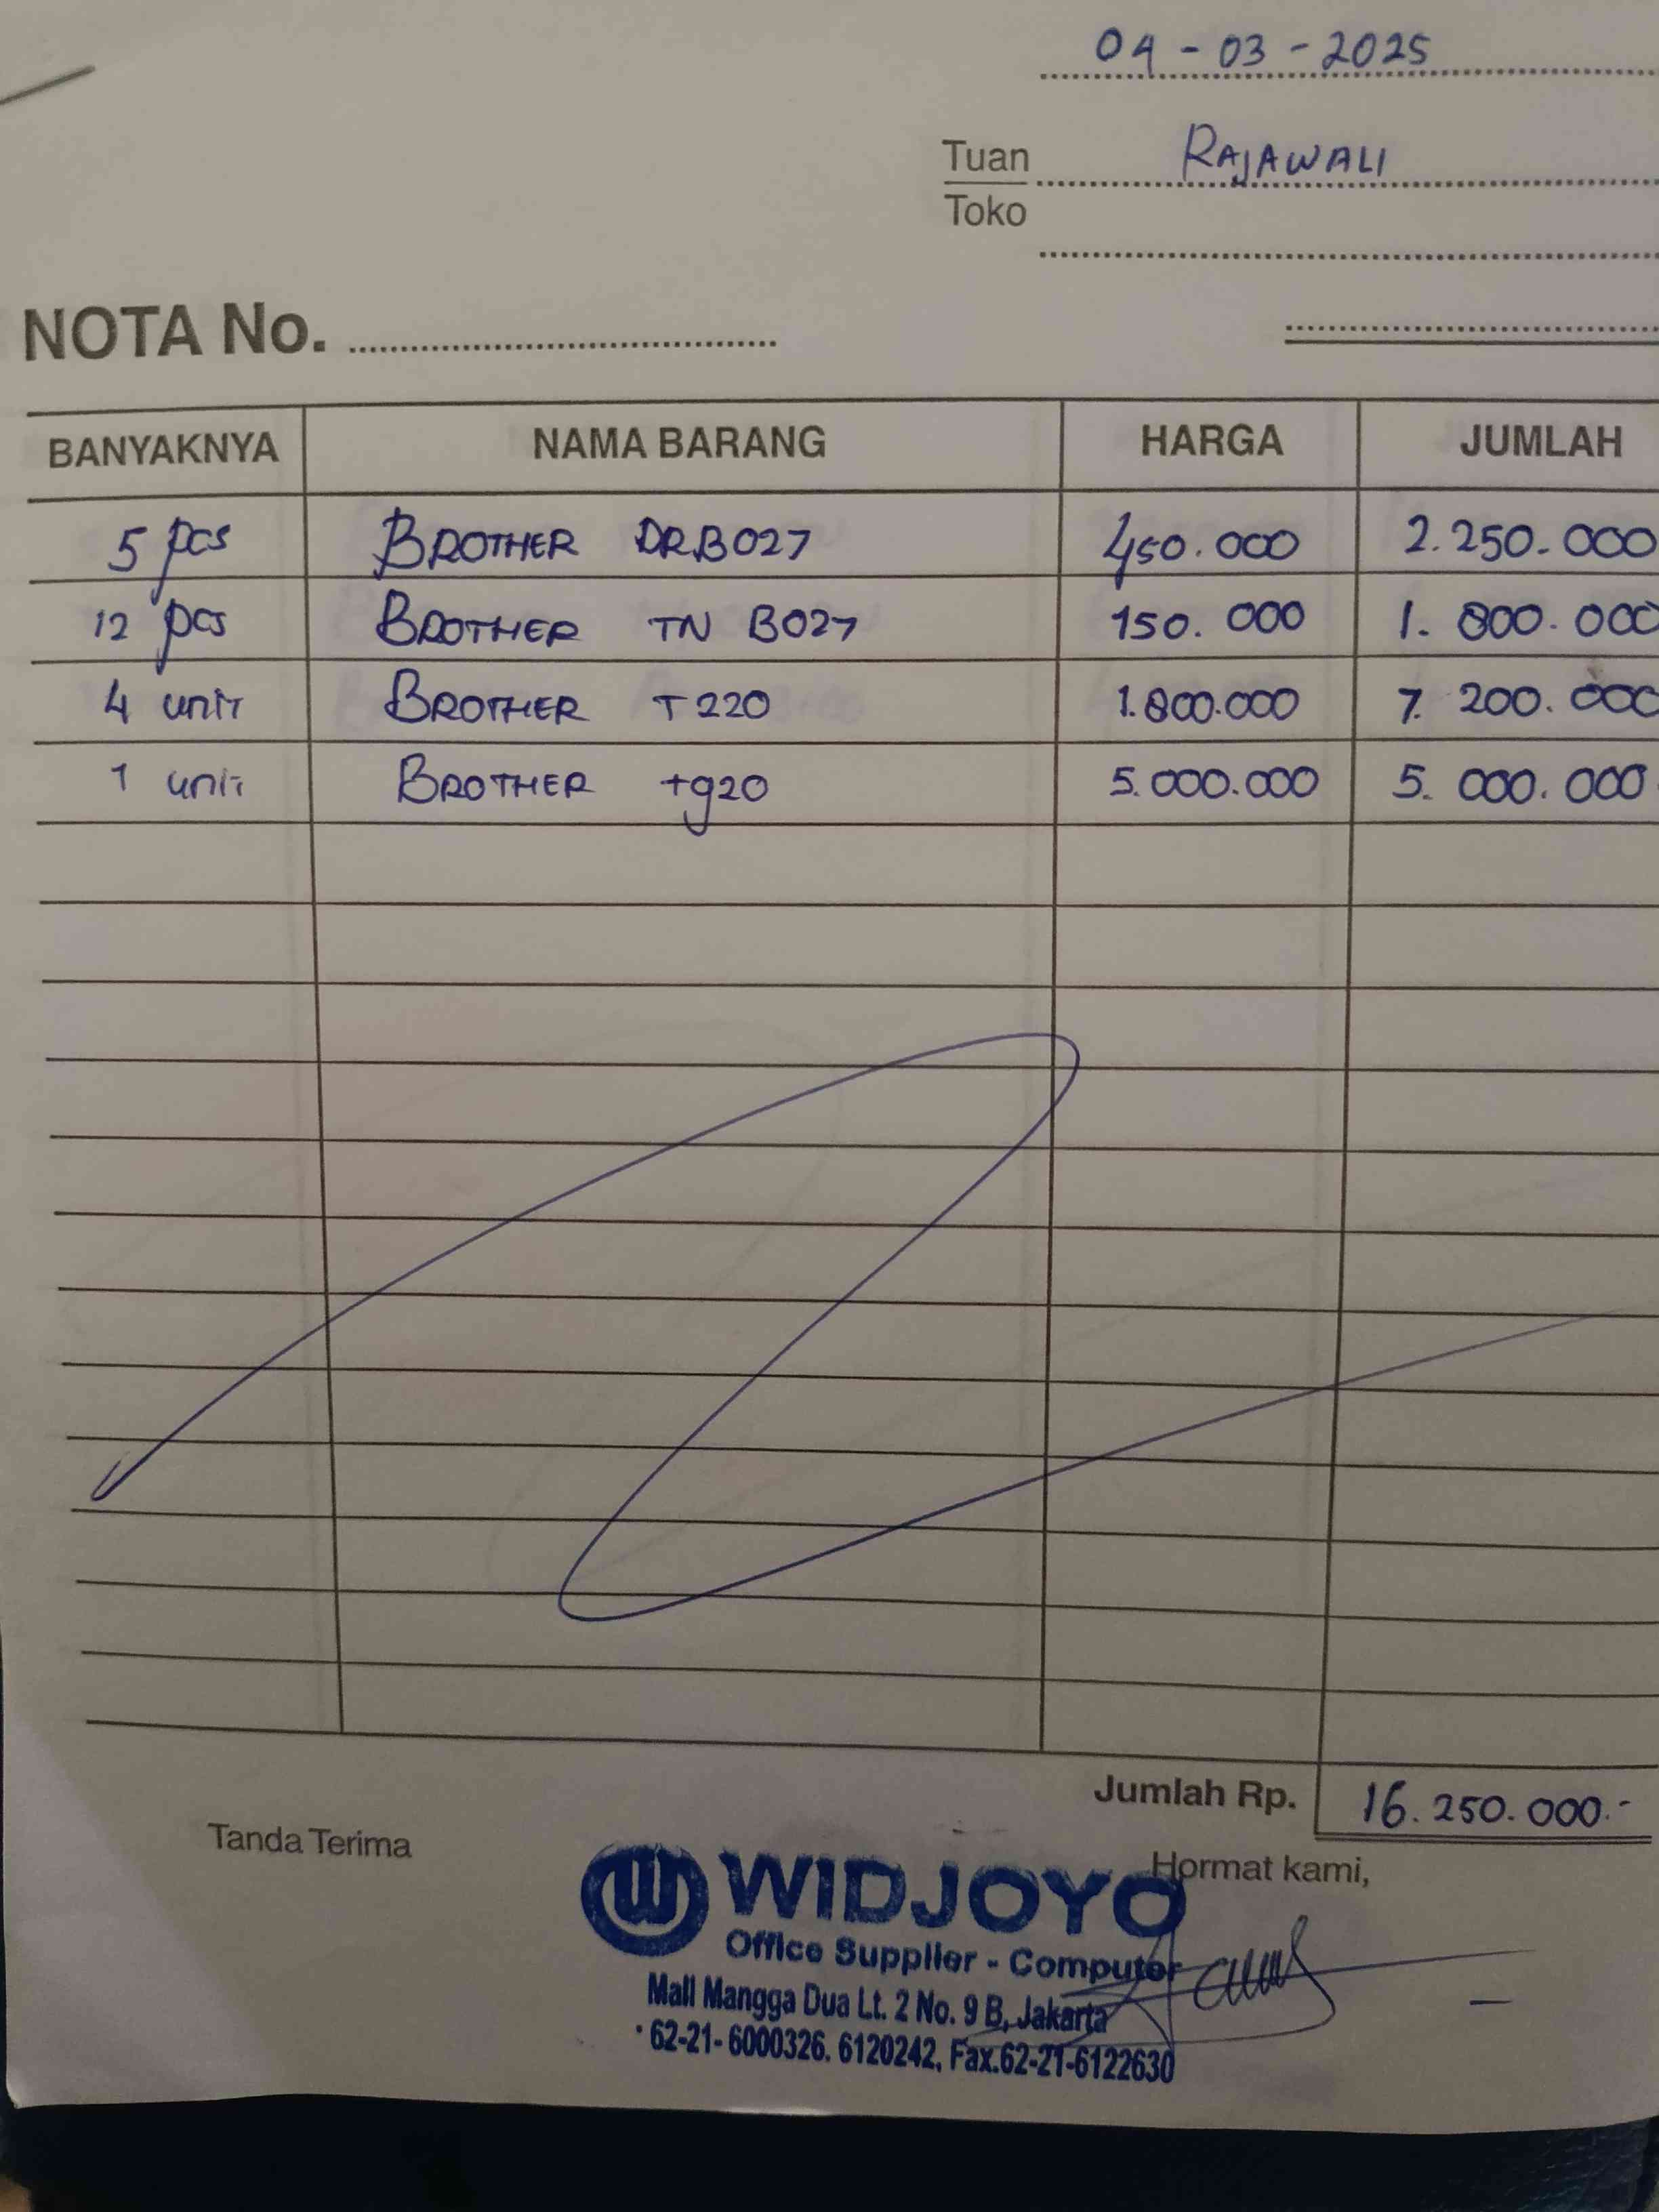 04 - 03 - 2025
Tuan RAJAWALI
Toko
NOTA No.
BANYAKNYA NAMA BARANG HARGA JUMLAH
5 pcs BROTHER DRB027 450.000 2.250.000
12 pcs BROTHER TN B027 150.000 1.800.000
4 unit BROTHER T220 1.800.000 7.200.000
1 unit BROTHER t920 5.000.000 5.000.000
Jumlah Rp. 16.250.000.-
Tanda Terima
Hormat kami,
WIDJOYO
Office Supplier - Computer
Mall Mangga Dua Lt. 2 No. 9 B, Jakarta
62-21- 6000326. 6120242, Fax.62-21-6122630